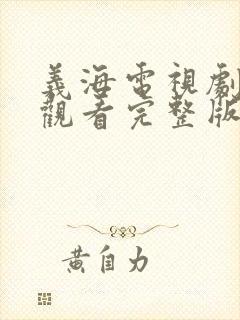 義海電視劇
觀看完整版
黃自力